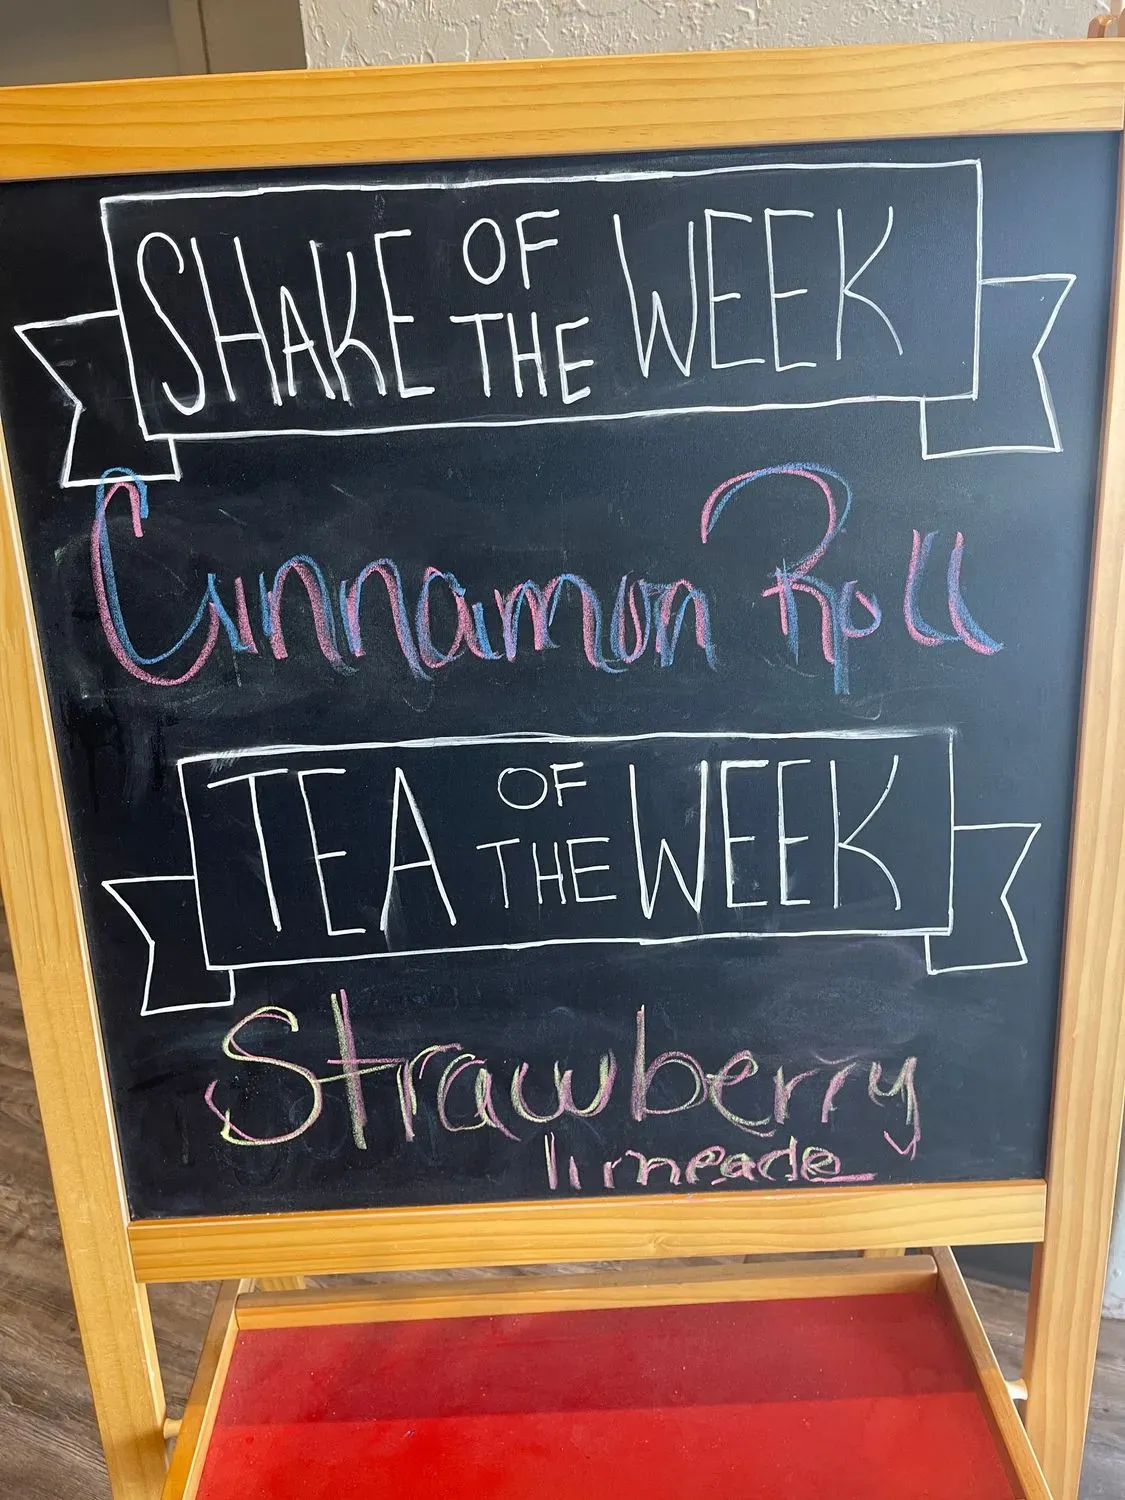 SHAKE OF THE WEEK
Cinnamon Roll
TEA OF THE WEEK
Strawberry
limeade